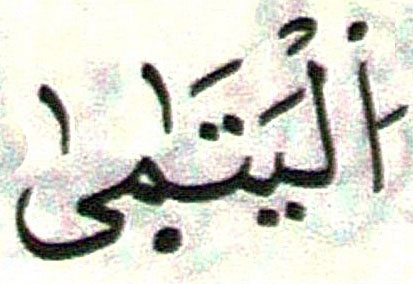 اَ۬لْيَتَٰم۪ىٰ